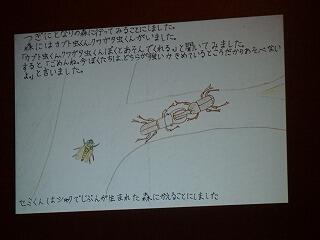 つぎにとなりの森に行ってみることにしました。
森にはカブト虫くんクワガタ虫くんがいました。
「カブト虫くんクワガタ虫くんぼくとあそんでくれる。」と聞いてみました。
すると「ごめんね。今ぼくたちは、どちらが強いかきめているところだからあそべない
よ。」と言いました。
セミくんはショックでじぶんが生まれた森にかえることにしました